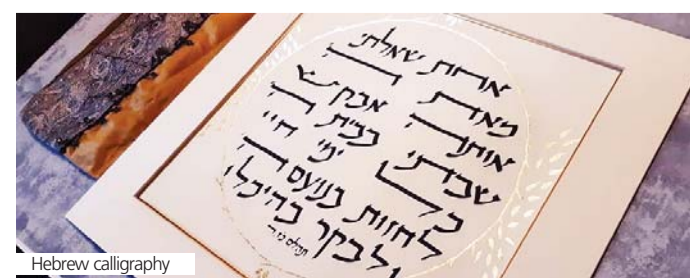 אחת שאלתי
מאת ה'
אותה אבקש
שבתי בבית ה'
כל ימי חיי
לחזות בנועם ה'
ולבקר בהיכלו
תהלים כז ד
Hebrew calligraphy